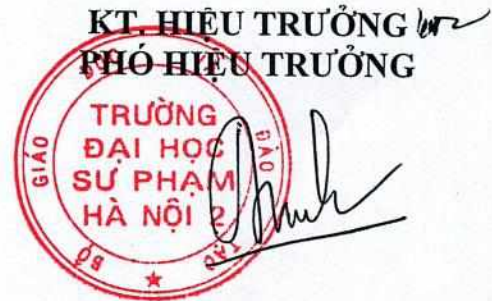 KT. HIỆU TRƯỞNG
PHÓ HIỆU TRƯỞNG
BỘ GIÁO DỤC VÀ ĐÀO TẠO
TRƯỜNG
ĐẠI HỌC
SƯ PHẠM
HÀ NỘI 2